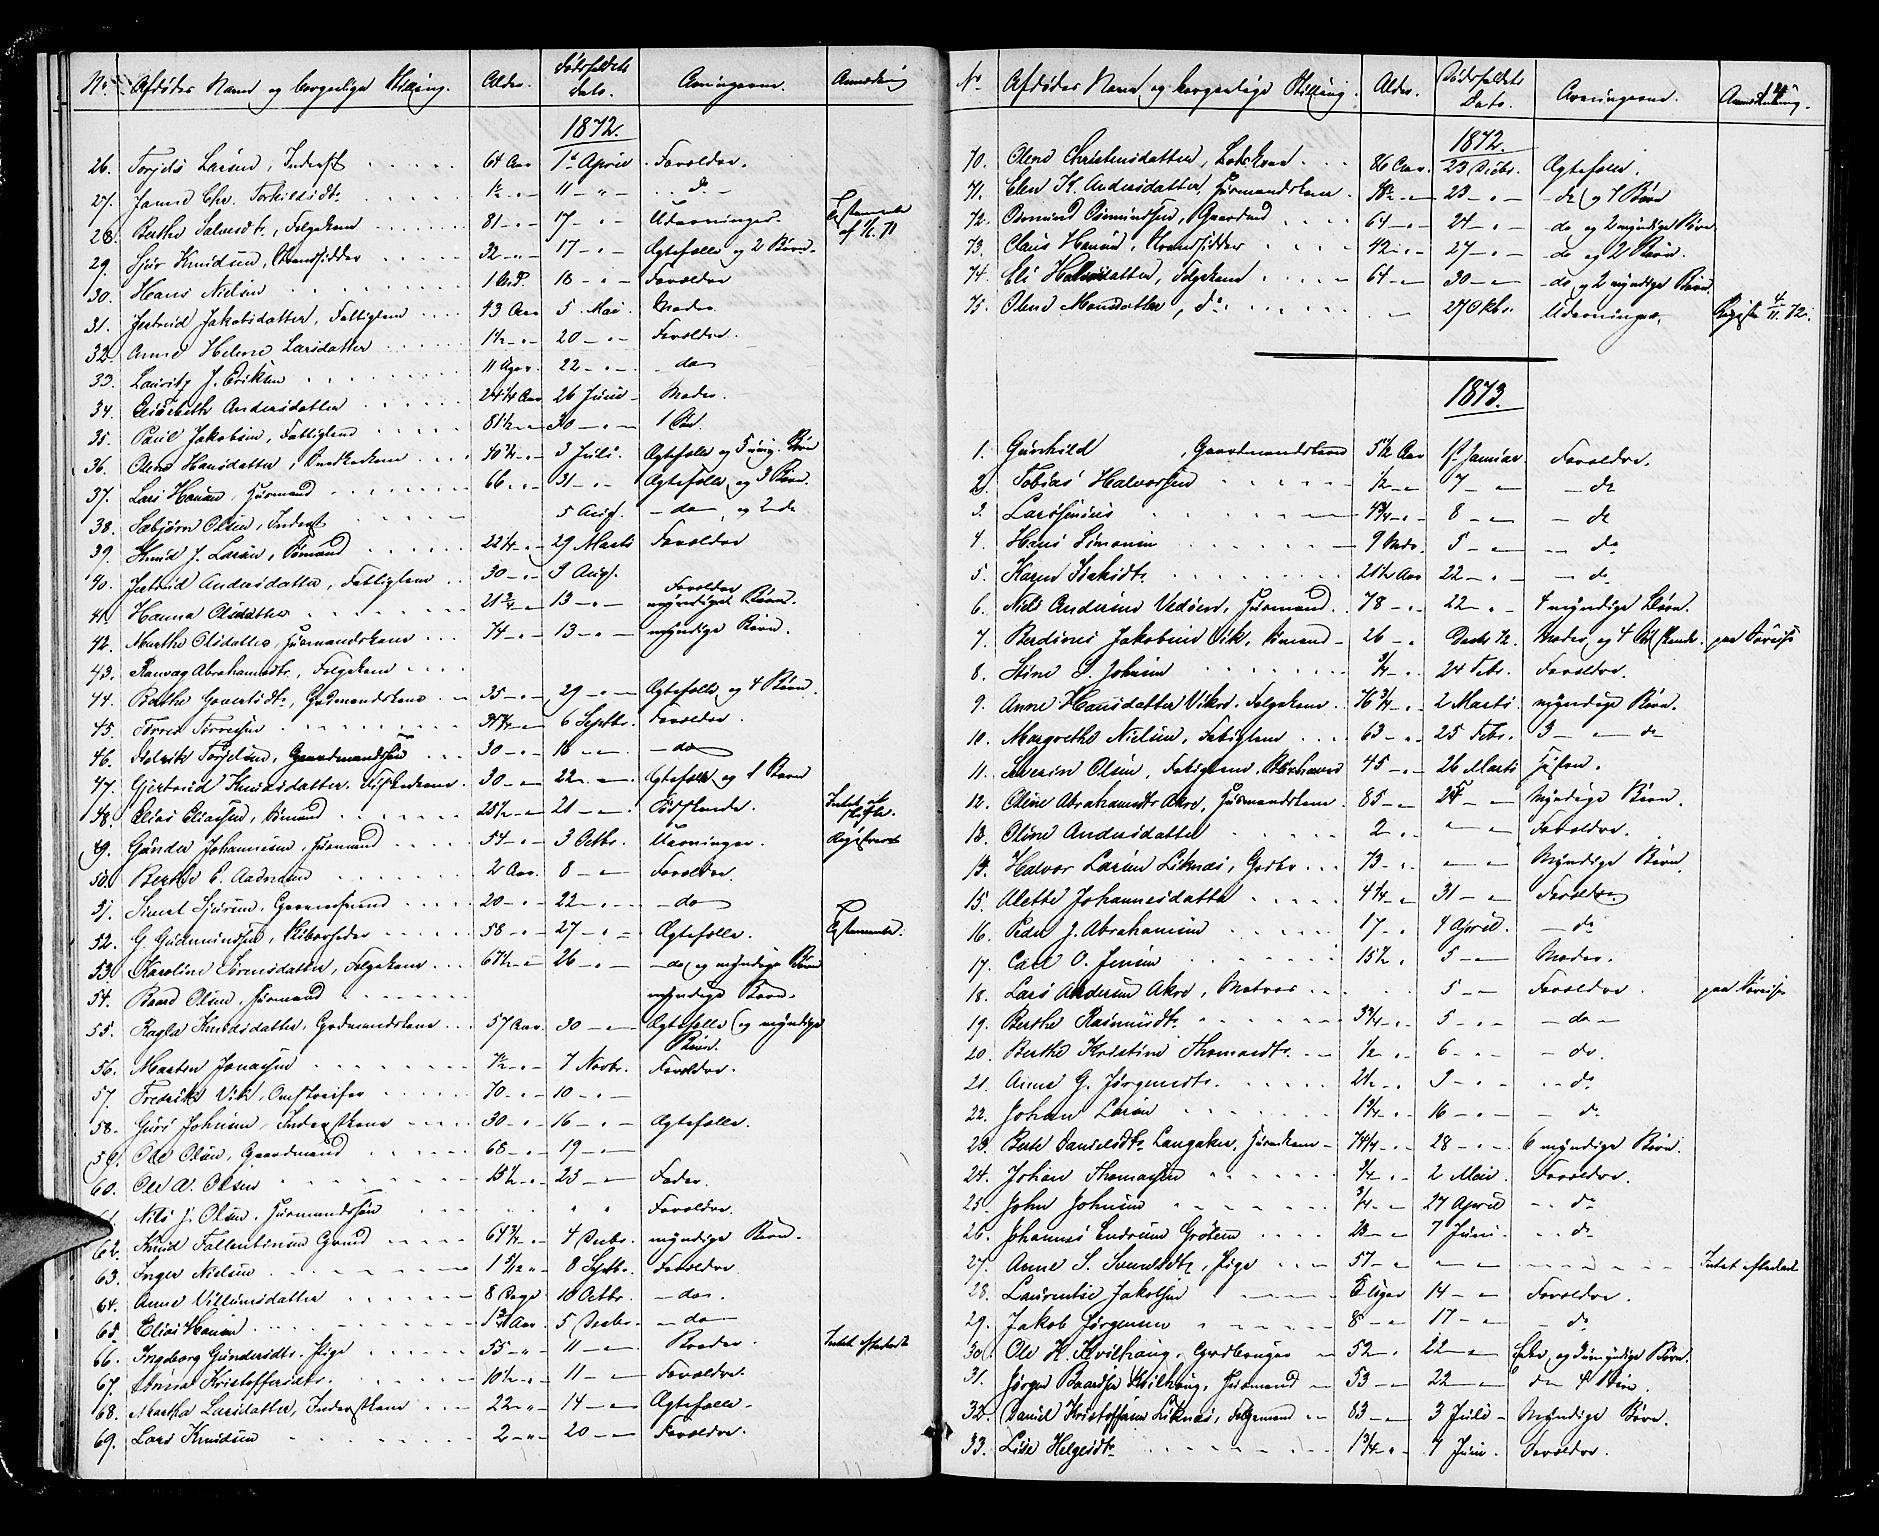 No. Afdødes Navn og borgerlige Stilling. Alder. Dødsfaldets Dato. Arvingerne. Anmerkning
1872.
26. Torjels Larsen, Inderst 64 Aar 1ste April Forældre.
27. Jame Chr. Torkildsdtr. 1½ - 11 - do
28. Berthe Salvesdtr., Folgekone 81 - 17 - Udarvinger. Testamente af 1/6 71
29. Sjur Knudsen, Strandsidder 32 - 17 - Ægtefælle og 2 Børn.
30. Hans Nielsen 18 - Forældre
31. Jertrud Jakobsdatter, Fattiglem 43 Aar 5 Mai Moder.
32. Anne Helene Larsdatter 1½ - 20 - Forældre.
33. Lauritz J. Eriksen 11 Uger 22 - do
34. Elisabeth Andersdatter 24¼ Aar 26 Juni Moder.
35. Paul Jakobsen, Fattiglem 81½ - 30 - 1 Søn.
36. Olene Hansdatter, 40¾ - 3 Juli. Ægtefælle og 5 umy. Børn
37. Lars Hansen, Husmand 66 - 31 - Ægtefælle og 3 Børn.
38. Sæbjørn Olsen, Inderst 5 Aug. - do og 2 do
39. Knud J. Larsen, Sømand 22¼ - 29 Marts Forældre
40. Jertrud Andersdatter, Fattiglem 30 - 9 Aug.
41. Hanna Olsdatter 21¾ - 13 - Forældre myndige Børn.
42. Marthe Olsdatter, Husmandskone 74 - 13 - myndige Børn.
43. Ranvag Abrahamsdtr., Folgekone
44. Berthe Govertsdtr., Gdmandskone 35 - 29 - Ægtefælle og 4 Børn.
45. Torres Torresen 6 Septbr. Forældre.
46. Hendrik Torjelsen, Gaardmandssøn 30 - 18 - do
47. Gjertrud Knudsdatter, Fiskerkone 30 - 22 - Ægtefælle og 1 Barn
48. Elias Eliassen, Sømand 25½ - 21 - Sødskende. Intet at skifte.
49. Gunder Johannesen, Husmand 54 - 3 Octbr. Uarvinger. Registreret
50. Berthe C. Aadnesen 2 Aar. 8 - Forældre.
51. Sivert Sjursen, 20 - 22 - do
52. G. Gudmundsen, 58 - 27 - Ægtefælle. Testamente.
53. Karoline Sørensdatter, Folgekone 67½ - 26 - do og myndige Børn
54. Baard Olsen, Husmand myndige Børn.
55. Ragla Knudsdatter, Gdmandskone 57 Aar 30 - Ægtefælle (og myndige Børn.
56. Marten Jonassen 7½ - 7 Novbr. Forældre.
57. Fredrik Vik, Omstreifer 70 - 10 -
58. Guri Johnsen, Inderstkone 30 - 16 - Ægtefælle.
59. Ole Olsen, Gaardmand 68 - 19 -
60. Ole A. Olsen 15½ - 25 - Fader.
61. Nils J. Olsen, Husmandssøn " " Forældre.
62. Knud Fallentinsen Grund 64¾ - 4 Decbr. myndige Børn.
63. Inger Nielsen 1 5/12 - 8 Septbr. Forældre.
64. Anne Villumsdatter 8 Dage 10 Octbr. - do.
65. Elias Hansen 5 Decbr. - do
66. Ingeborg Gundersdtr. Pige 55 - 11 - Broder Intet efterladt
67. Emma Kristoffersdtr. 10½ - 11 - Forældre.
68. Martha Larsdatter, Inderstkone 22 - 14 - Ægtefælle.
69. Lars Knudsen 2 - 20 - Forældre.
No Afdødes Navn og borgerlige Stilling. Alder. Dødsfaldets Dato. Arvingerne. Anmærkning.
1872.
70. Olene Christensdatter, Loskone 86 Aar. 23 Decbr. Ægtefælle.
71. Elen K. Andersdatter, Husmandskone 23 - do og 1 Barn
72. Osmund Osmundsen, Gaardmd 64 - 24 - do og 2 myndige Børn.
73. Claus Hansen, Strandsidder 42 - 27 - do og 2 Børn.
74. Eli Halvorsdatter, Folgekone 64 - 30 - do og 2 myndige Børn.
75. Olene Monsdatter, do. - 27 Okbr. Udarvinger. Registr. 4/11. 72.
1873.
1. Gunhild , Gaardmandskone 5½ Aar 1ste Januar Forældre.
2. Tobias Halvorsen ½ - 7 - do
3. Larsserius 8 - do
4. Hans Simonsen 9 Mdr. 5 - do
5. Karen Isaksdtr. 21½ Aar 22 - do
6. Niels Andersen Vedøen, Husmand. 78 - 22 - 4 myndige Børn.
7. Berdines Jakobsen Vik, Sømand 26 - Moder og 4 Sødskende. paa Søreise
8. Stine S. Johnsen ¾ - 24 Febr. Forældre.
9. Anne Hansdatter Vikre, Folgekone 76¾ - 2 Marts myndige Børn.
10. Margrethe Nielsen, Fatiglem 63 - 25 Febr. 3 - do
11. Severin Olsen, Fatiglem, 45 - 26 Marts Hustru.
12. Oline Abrahamsdtr Akre, Husmandskone 85 - Myndige Børn.
13. Oline Andersdatter 2 - Forældre.
14. Halvor Larsen Liknæs, Gdbr 73 - Myndige Børn.
15. Alette Johannesdatter 4¼ - 31 - Forældre
16. Peder J. Abrahamsen 17 - 4 April - do
17. Carl O. Jensen 15½ - 5 - Moder.
18. Lars Andersen Akre, Matros 5 - Forældre. paa Søreise
19. Berthe Rasmusdtr. 5 - do
20. Berthe Kristine Thomasdtr. ½ - 6 - do.
21. Anne G. Jørgensdtr. 2½ - 9 - do
22. Johan Larsen 1¾ - 16 - do
23. Berte Danielsdtr. Langaker, Husmkone 74¼ - 28 - 6 myndige Børn.
24. Johan Thomassen ¾ - 2 Mai. Forældre.
25. John Johnsen ¾ - 27 April - do
26. Johannes Endresen Grøtem 23 - 7 Juni - do
27. Anne S. Svendsdtr, Pige 57 - Intet efterladt
28. Laurentse Jakobsen 5 Uger 14 - Forældre.
29. Jakob Jørgensen 8 - 17 - do
30. Ole H. Kvilhaug, Gdbruger 52 - 22 - Enke og 3 umyndige Børn.
31. Jørgen Baardsen Kvilhaug, Husmand 53 - 22 - do 4 Børn.
32. Daniel Kristoffersen Liknes, Folgemand 83 - 3 Juli - Myndige Børn.
33. Lise Helgesdtr. 1¾ - 7 Juni - Forældre.